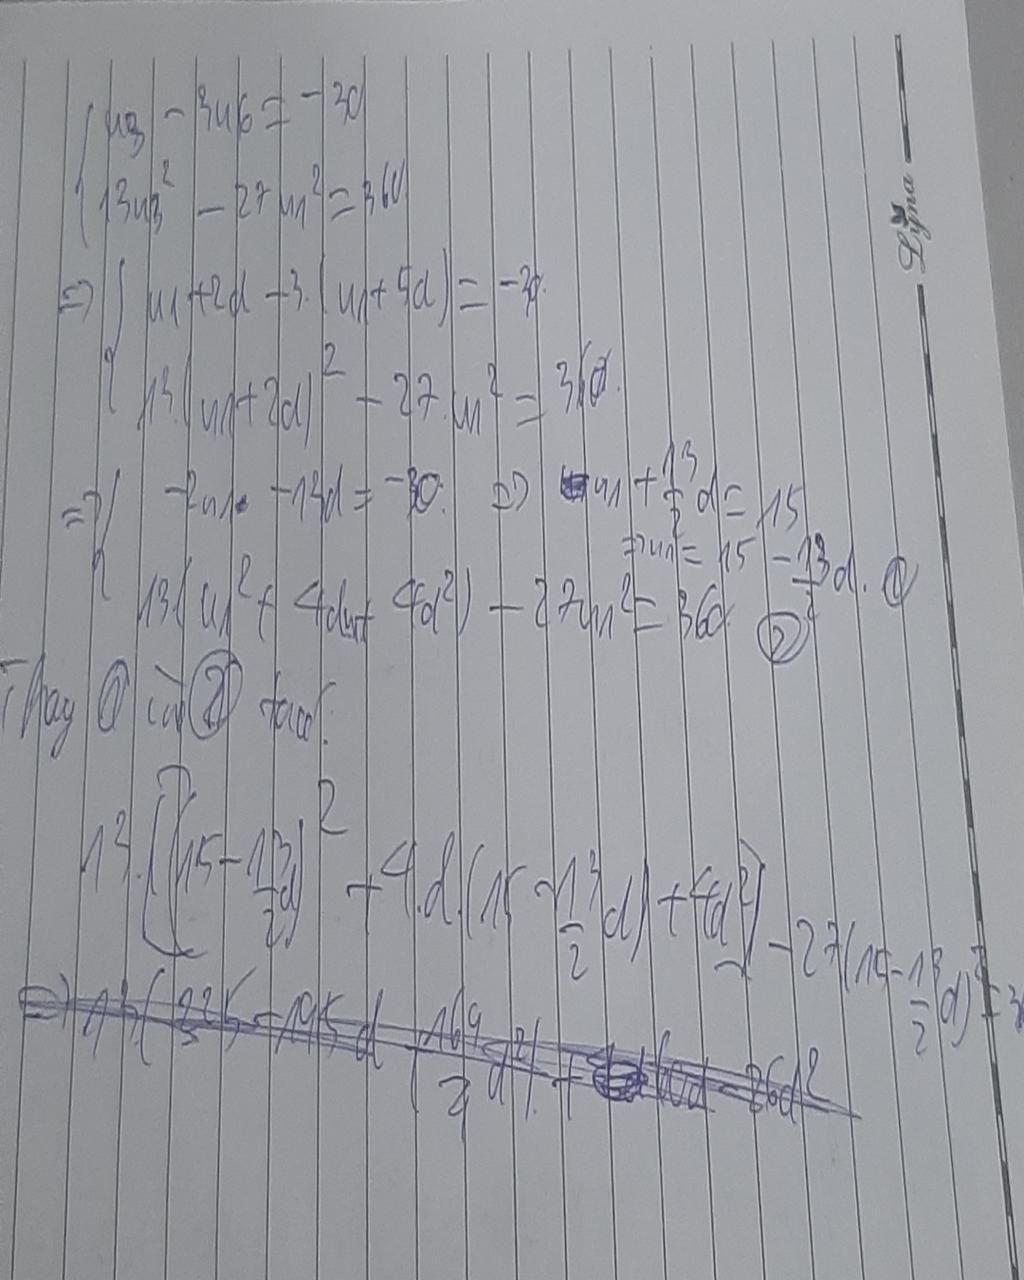 { u3 - 3u6 = -30
13u3² - 27u1² = 360
=> { u1 + 2d - 3.(u1 + 5d) = -30.
13.(u1 + 2d)² - 27.u1² = 360.
=> { -2u1 - 13d = -30. => u1 + 13/2 d = 15
=> u1 = 15 - 13/2 d. ①
13(u1² + 4du1 + 4d²) - 27u1² = 360 ②
Thay ① vào ② ta có:
13.[(15 - 13/2 d)² + 4.d.(15 - 13/2 d) + 4d²] - 27(15 - 13/2 d)² = 3
=> 13(225 - 195d + 169/4 d²) + 60d - 26d²
Lyna